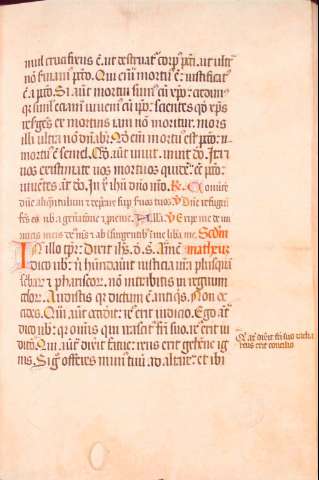 mul crucifixus ē. ut destruat̄ corp' pcti. ut ultᵃ
nō ſuiam' pcto. Qui eni mortu' ē: iustificat'
ē a pcto. Si aut mortui sum' cū xpo: credim'
qr simul etiam viuem' cū xpo: scientes qd xps
resurges ex mortuis iam nō moritur. mors
illi ultra nō dnabit. Qd eni mortu' est pcto:
mortu' ē semel. Qd aut uiuit. uiuit do. Ita ⁊
uos existimate uos mortuos quidē ēē pcto:
uiuētes aut do. In x ihu dno nro. Conuerte
dne aliqntulum ⁊ depcare sup seruos tuos. V Dne refugiū
fcs es nob a genatione ⁊ pgenie. Alla. V Eripe me de ini
micis meis ds ms ⁊ ab insurgentib i me libera me. Scdm
In illo tpr. Dixit ihs. d. s. Amē matheum
dico uob: ni habundauit iusticia ura plusquā
scribar ⁊ phariseor. nō intrabitis in regnum
celor. Audistis qr dictum ē antiqs. Non oc
cides. Qui aut occidit: re' erit iudicio. Ego at
dico uob: qr omnis qui irascit fri suo. re' erit iu
dicio. Qui aut dixerit fatue: reus erit gehene ig
nis. Si g offeres mun' tuū ad altare: et ibi
Qi at dixerit fri suo racha
reus erit concilio